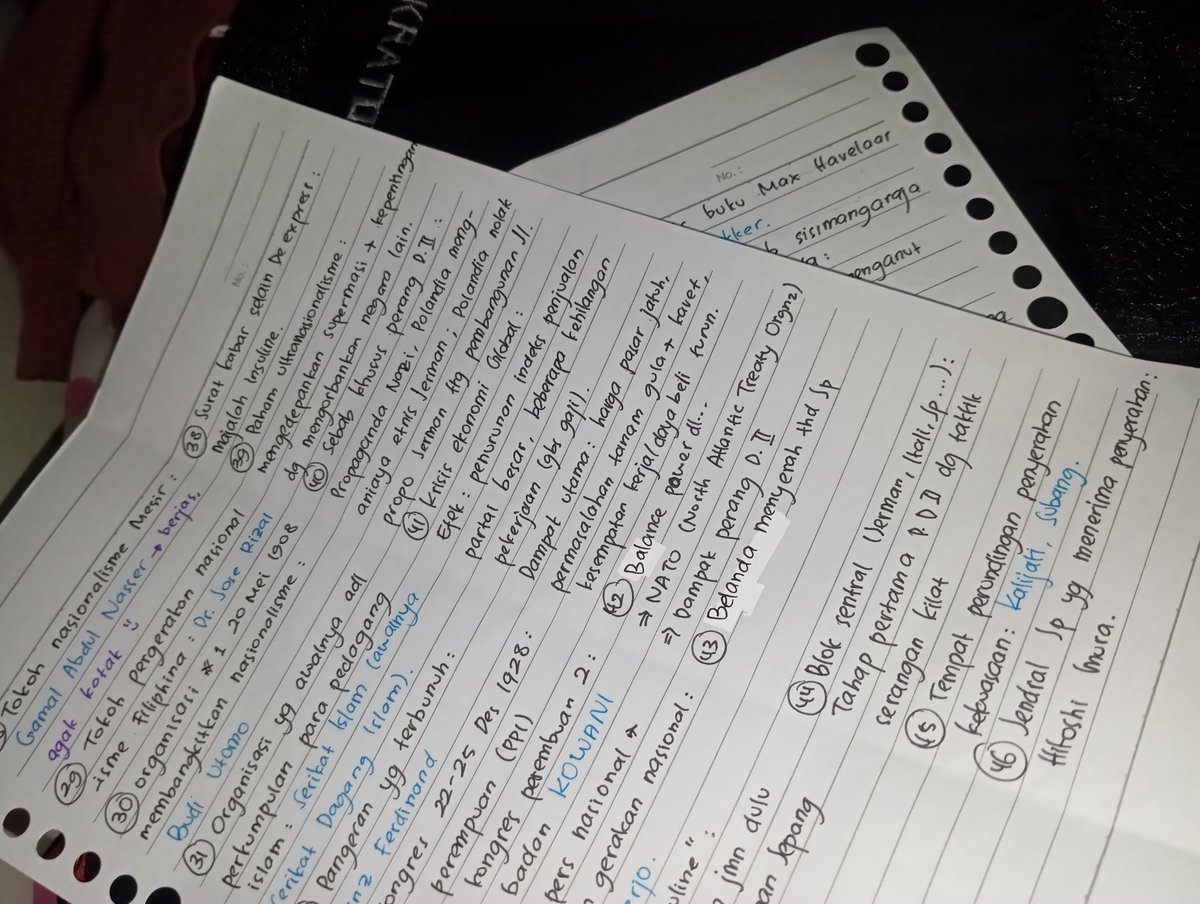 KRATO
No.:
buku Max Havelaar
kker.
sisimangaraja
enganut
No.:
Tokoh nasionalisme Mesir:
Gamal Abdul Nasser → berjas,
agak kotak
29 Tokoh pergeratan nasional
isme Filiphina: Dr. Jose Rizal
30 organisasi # 1 20 Mei 1908
membangkitkan nasionalisme:
Budi Utomo
31 Organisasi yg awalnya adl
perkumpulan para pedagang
islam: Serikat Islam (awalnya
Serikat Dagang Islam).
Pangeran yg terbunuh:
nz Ferdinand
ongres 22-25 Des 1928:
perempuan (PPI)
kongres perembuan 2:
badan KOWANI
pers nasional →
gerakan nasional:
erjo.
uline":
jmn dulu
an Jepang
38 Surat kabar selain De expres:
majalah insuline.
39 Paham ultranasionalisme:
mengedepankan supermasi + kepentingan
dg mengorbankan negara lain.
40 Sebab khusus perang D.II:
Propaganda Nazi, Polandia meng-
aniaya etnis Jerman, Polandia nolak
propo Jerman ttg pembangunan jl.
41 Krisis ekonomi Global:
Efek: penurunan indeks penjualan
partai besar, beberapa kehilangan
pekerjaan (gbs gaji).
Dampak utama: harga pasar jatuh,
permasalahan tanam gula + karet,
kesempatan kerja/daya beli turun.
42 Balance power dl...
⇒ NATO (North Atlantic Treaty Orgnz)
⇒ Dampak perang D. II
43 Belanda menyerah thd Jp
44 Blok sentral (Jerman, Itali, Jp...):
Tahap pertama P. D II dg taktik
serangan kilat
45 Tempat perundingan penyeratan
kekuasaan: Kalijati, Subang.
46 Jendral Jp yg menerima penyerahan:
Hitoshi Imura.